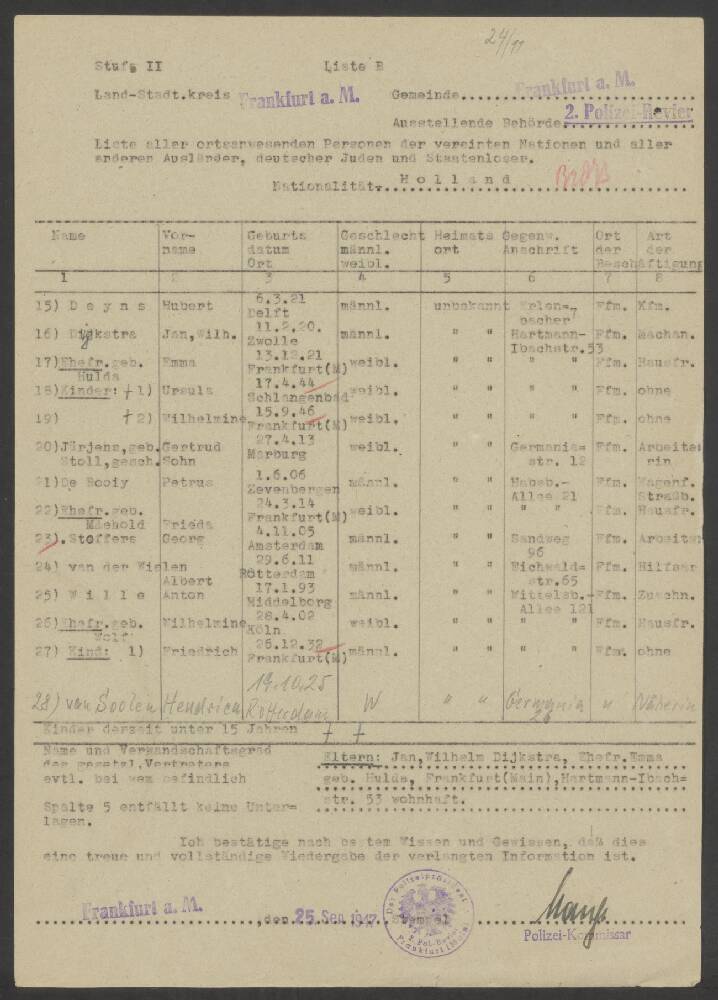 24/11
Stufe II Liste B
Land-Stadt.kreis Frankfurt a. M. Gemeinde Frankfurt a. M.
Ausstellende Behörde 2. Polizei-Revier
Liste aller ortsanwesenden Personen der vereinten Nationen und aller
anderen Ausländer, deutscher Juden und Staatenloser.
Nationalität. Holland
Name Vor- Geburts Geschlecht Heimats Gegenw. Ort Art
name datum männl. ort Anschrift der der
Ort weibl. Beschäftigung
1 2 3 4 5 6 7 8
15) Deyns Hubert 6.3.21 männl. unbekannt Erlen= Ffm. Kfm.
Delft bacher
16) Dijkstra Jan,Wilh. 11.2.20. männl. " " Hartmann- Ffm. Machan.
Zwolle Ibachstr.53
17) Ehefr.geb. Emma 13.12.21 weibl. " " " Ffm. Hausfr.
Hulda Frankfurt(M)
18) Kinder: + 1) Ursula 17.4.44 weibl. " " " " Ffm. ohne
Schlangenbad
19) + 2) Wilhelmine 15.9.46 weibl. " " " " Ffm. ohne
Frankfurt(M)
20) Jürjens,geb. Gertrud 27.4.13 weibl. " " Germania= Ffm. Arbeite
Stoll,gesch.Sohn Marburg str. 12 rin
21) De Rooiy Petrus 1.6.06 männl. " " Habsb.- Ffm. Wagenf.
Zevenbergen Allee 21 Straßb.
22) Ehefr.geb. 24.3.14 weibl. " " " " Ffm. Hausfr.
Miehold Frieda Frankfurt(M)
23). Stoffers Georg 4.11.05 männl. " " Sandweg Ffm. Arbeiter
Amsterdam 96
24) van der Wielen 29.6.11 männl. " " Eichwald= Ffm. Hilfsar
Albert Rotterdam str.65
25) Wille Anton 17.1.93 männl. " " Wittelsb.- Ffm. Zuschn.
Middelborg Allee 121
26) Ehefr.geb. Wilhelmine 28.4.02 weibl. " " " " Ffm. Hausfr.
Wolf Köln
27) Kind: 1) Friedrich 26.12.32 männl. " " " " Ffm. ohne
Frankfurt(M)
28) van Soolen Hendrica 19.10.25 W " " Germania " Näherin
Rotterdam 26
Kinder derzeit unter 15 Jahren + +
Name und Verwandschaftsgrad Eltern: Jan,Wilhelm Dijkstra, Ehefr.Emma
des gesetzl.Vertreters
evtl. bei wem befindlich geb. Hulda, Frankfurt(Main),Hartmann-Ibach=
str. 53 wohnhaft.
Spalte 5 entfällt keine Unter=
lagen.
Ich bestätige nach bestem Wissen und Gewissen, daß dies
eine treue und vollständige Wiedergabe der verlangten Information ist.
Frankfurt a. M. ,den 25. Sep. 1947 Stempel
Der Polizeipräsident
2. Pol.-Revier
Frankfurt (Main)
Polizei-Kommissar